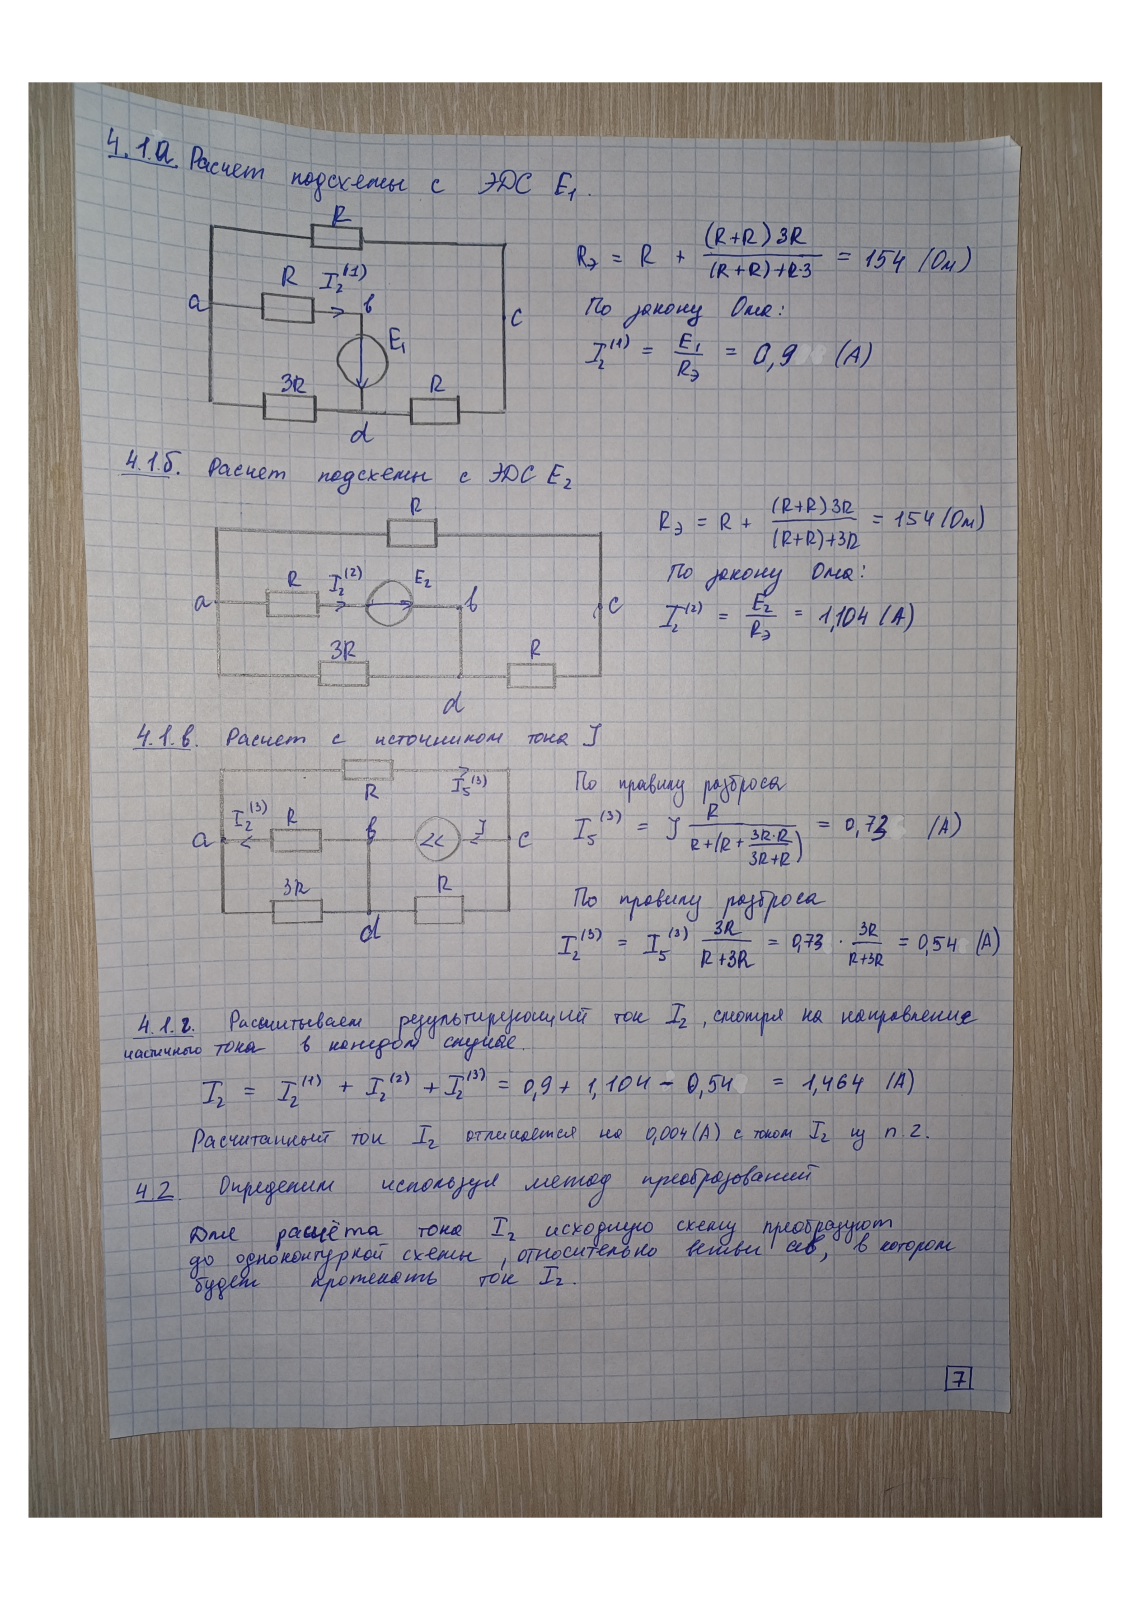 4.1.а. Расчет подсхемы с ЭДС E₁.
R
R I₂⁽¹⁾
a b c
E₁
3R R
d
Rэ = R + (R+R)3R / (R+R)+R·3 = 154 (Ом)
По закону Ома:
I₂⁽¹⁾ = E₁/Rэ = 0,9 (А)
4.1.б. Расчет подсхемы с ЭДС E₂
R
R I₂⁽²⁾ E₂
a b c
3R R
d
Rэ = R + (R+R)3R / (R+R)+3R = 154 (Ом)
По закону Ома:
I₂⁽²⁾ = E₂/Rэ = 1,104 (А)
4.1.в. Расчет с источником тока J
R I₅⁽³⁾
I₂⁽³⁾ R J
a b c
3R R
d
По правилу разброса
I₅⁽³⁾ = J R / R+(R+ 3R·R / 3R+R) = 0,73 (А)
По правилу разброса
I₂⁽³⁾ = I₅⁽³⁾ 3R / R+3R = 0,73 · 3R / R+3R = 0,54 (А)
4.1.г. Рассчитываем результирующий ток I₂, смотря на направление
частичного тока в каждом случае.
I₂ = I₂⁽¹⁾ + I₂⁽²⁾ + I₂⁽³⁾ = 0,9 + 1,104 − 0,54 = 1,464 (А)
Расчитанный ток I₂ отличается на 0,004(А) с током I₂ из п.2.
4.2 Определим используя метод преобразований
Для расчёта тока I₂ исходную схему преобразуют
до одноконтурной схемы, относительно ветви ав, в котором
будет протекать ток I₂.
7